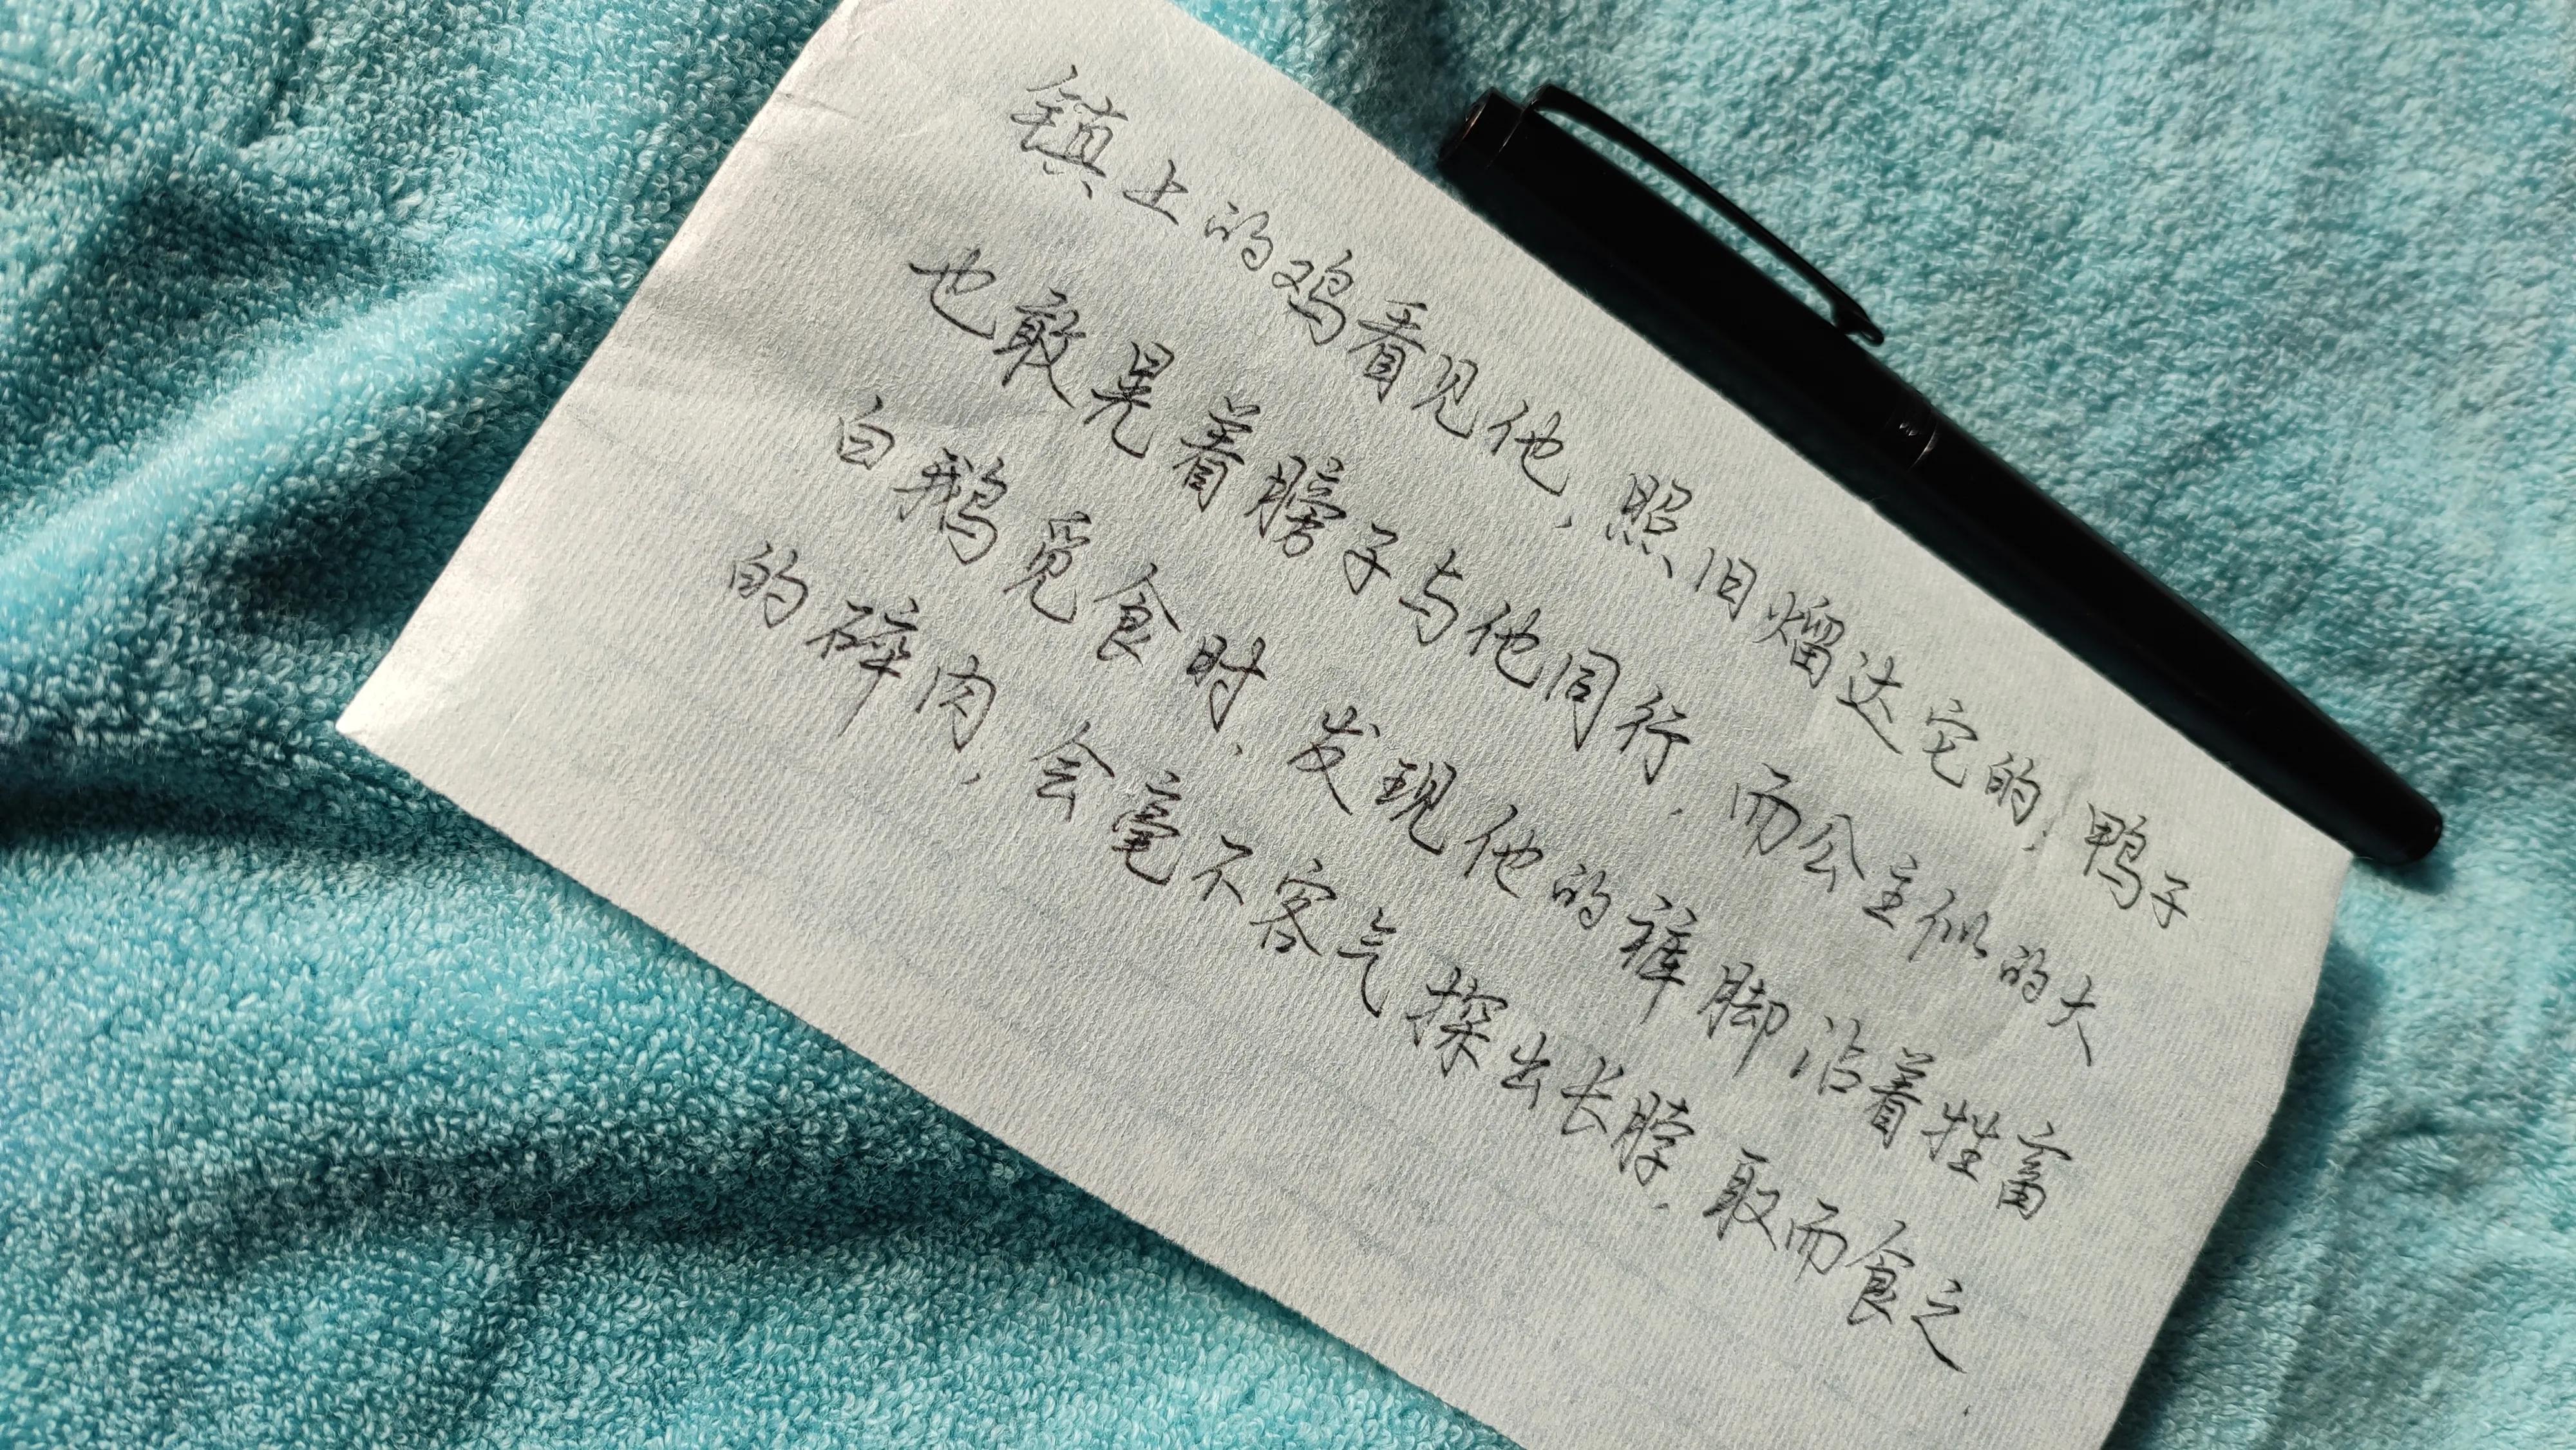 镇上的鸡看见他，照旧熘达它的；鸭子
也敢晃着膀子与他同行，而公主似的大
白鹅觅食时，发现他的裤脚沾着牲畜
的碎肉，会毫不客气探出长脖，取而食之